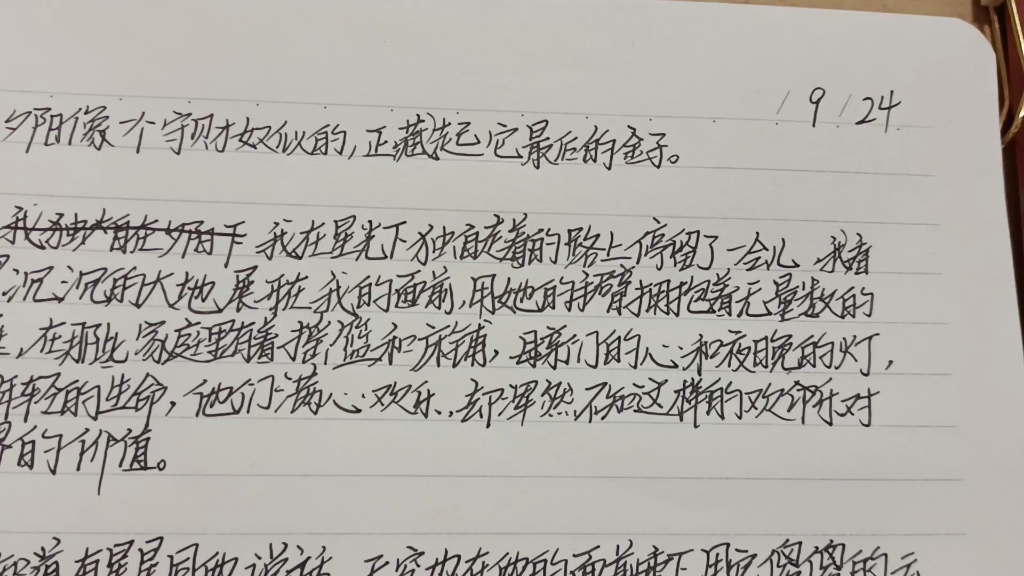 / 9 / 24
夕阳像一个守财奴似的,正藏起它最后的金子。
我在星光下独自走着的路上停留了一会儿 我看
沉沉的大地展开在我的面前,用她的手臂拥抱着无量数的
庭,在那些家庭里有着摇篮和床铺,母亲们的心和夜晚的灯,
年轻的生命,他们满心欢乐,却浑然不知这样的欢乐对
界的价值。
着星星同他说话,天空也在他的面前垂下,用它傻傻的云